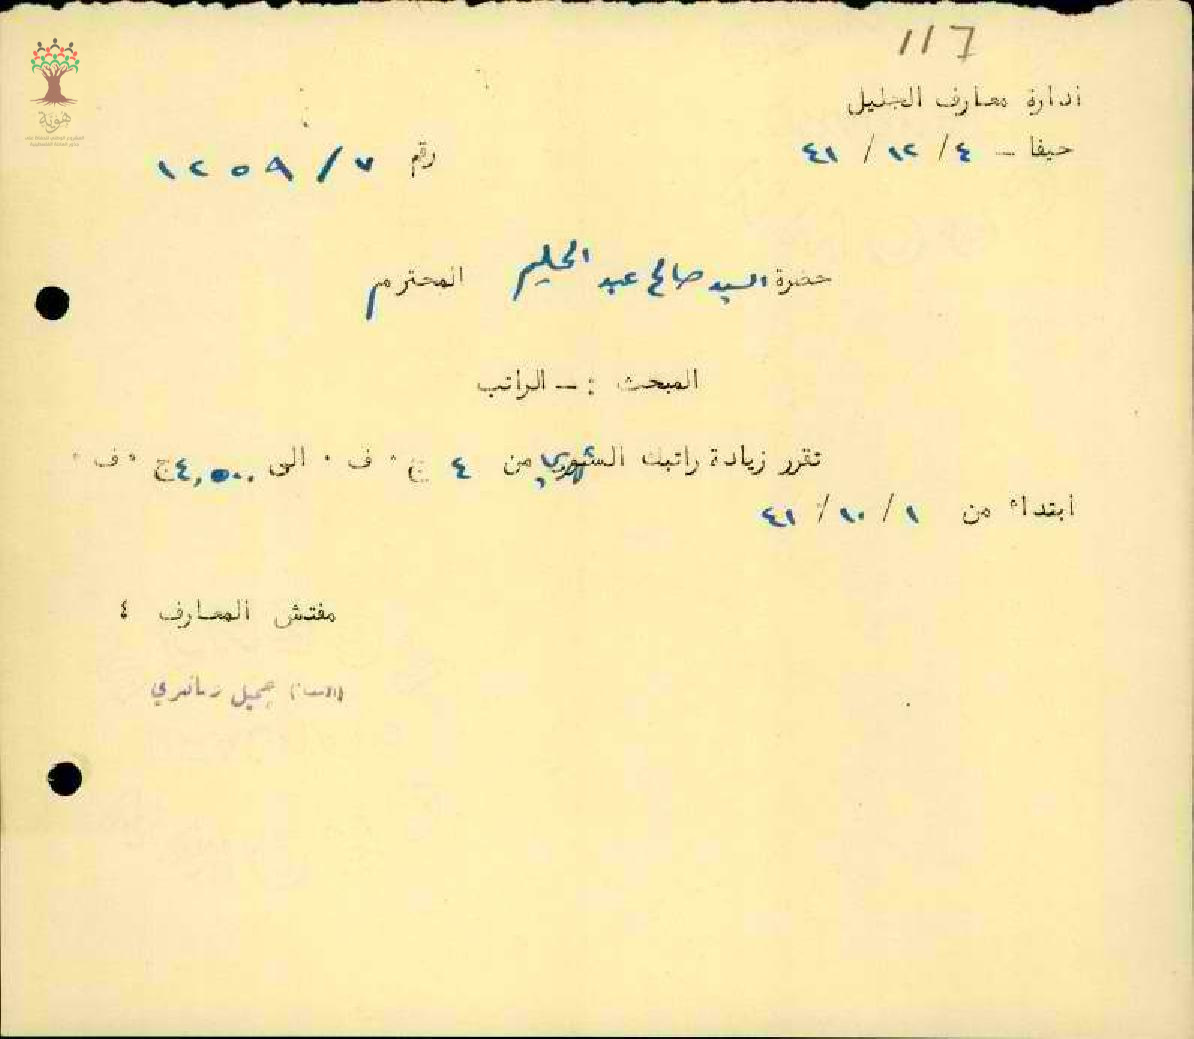 117
ادارة معارف الجليل
حيفا - ٤ / ١٢ / ٤١
رقم ٧ / ١٢٥٩
حضرة السيد صالح عبد الحليم المحترم
المبحث :- الراتب
تقرر زيادة راتبك الشهري من ٤ ج٠ ف ٠ الى ٤,٥٠٠ ج ٠ف ٠
ابتداء من ١ / ١٠ / ٤١
مفتش المعارف ٤
جميل
هوية